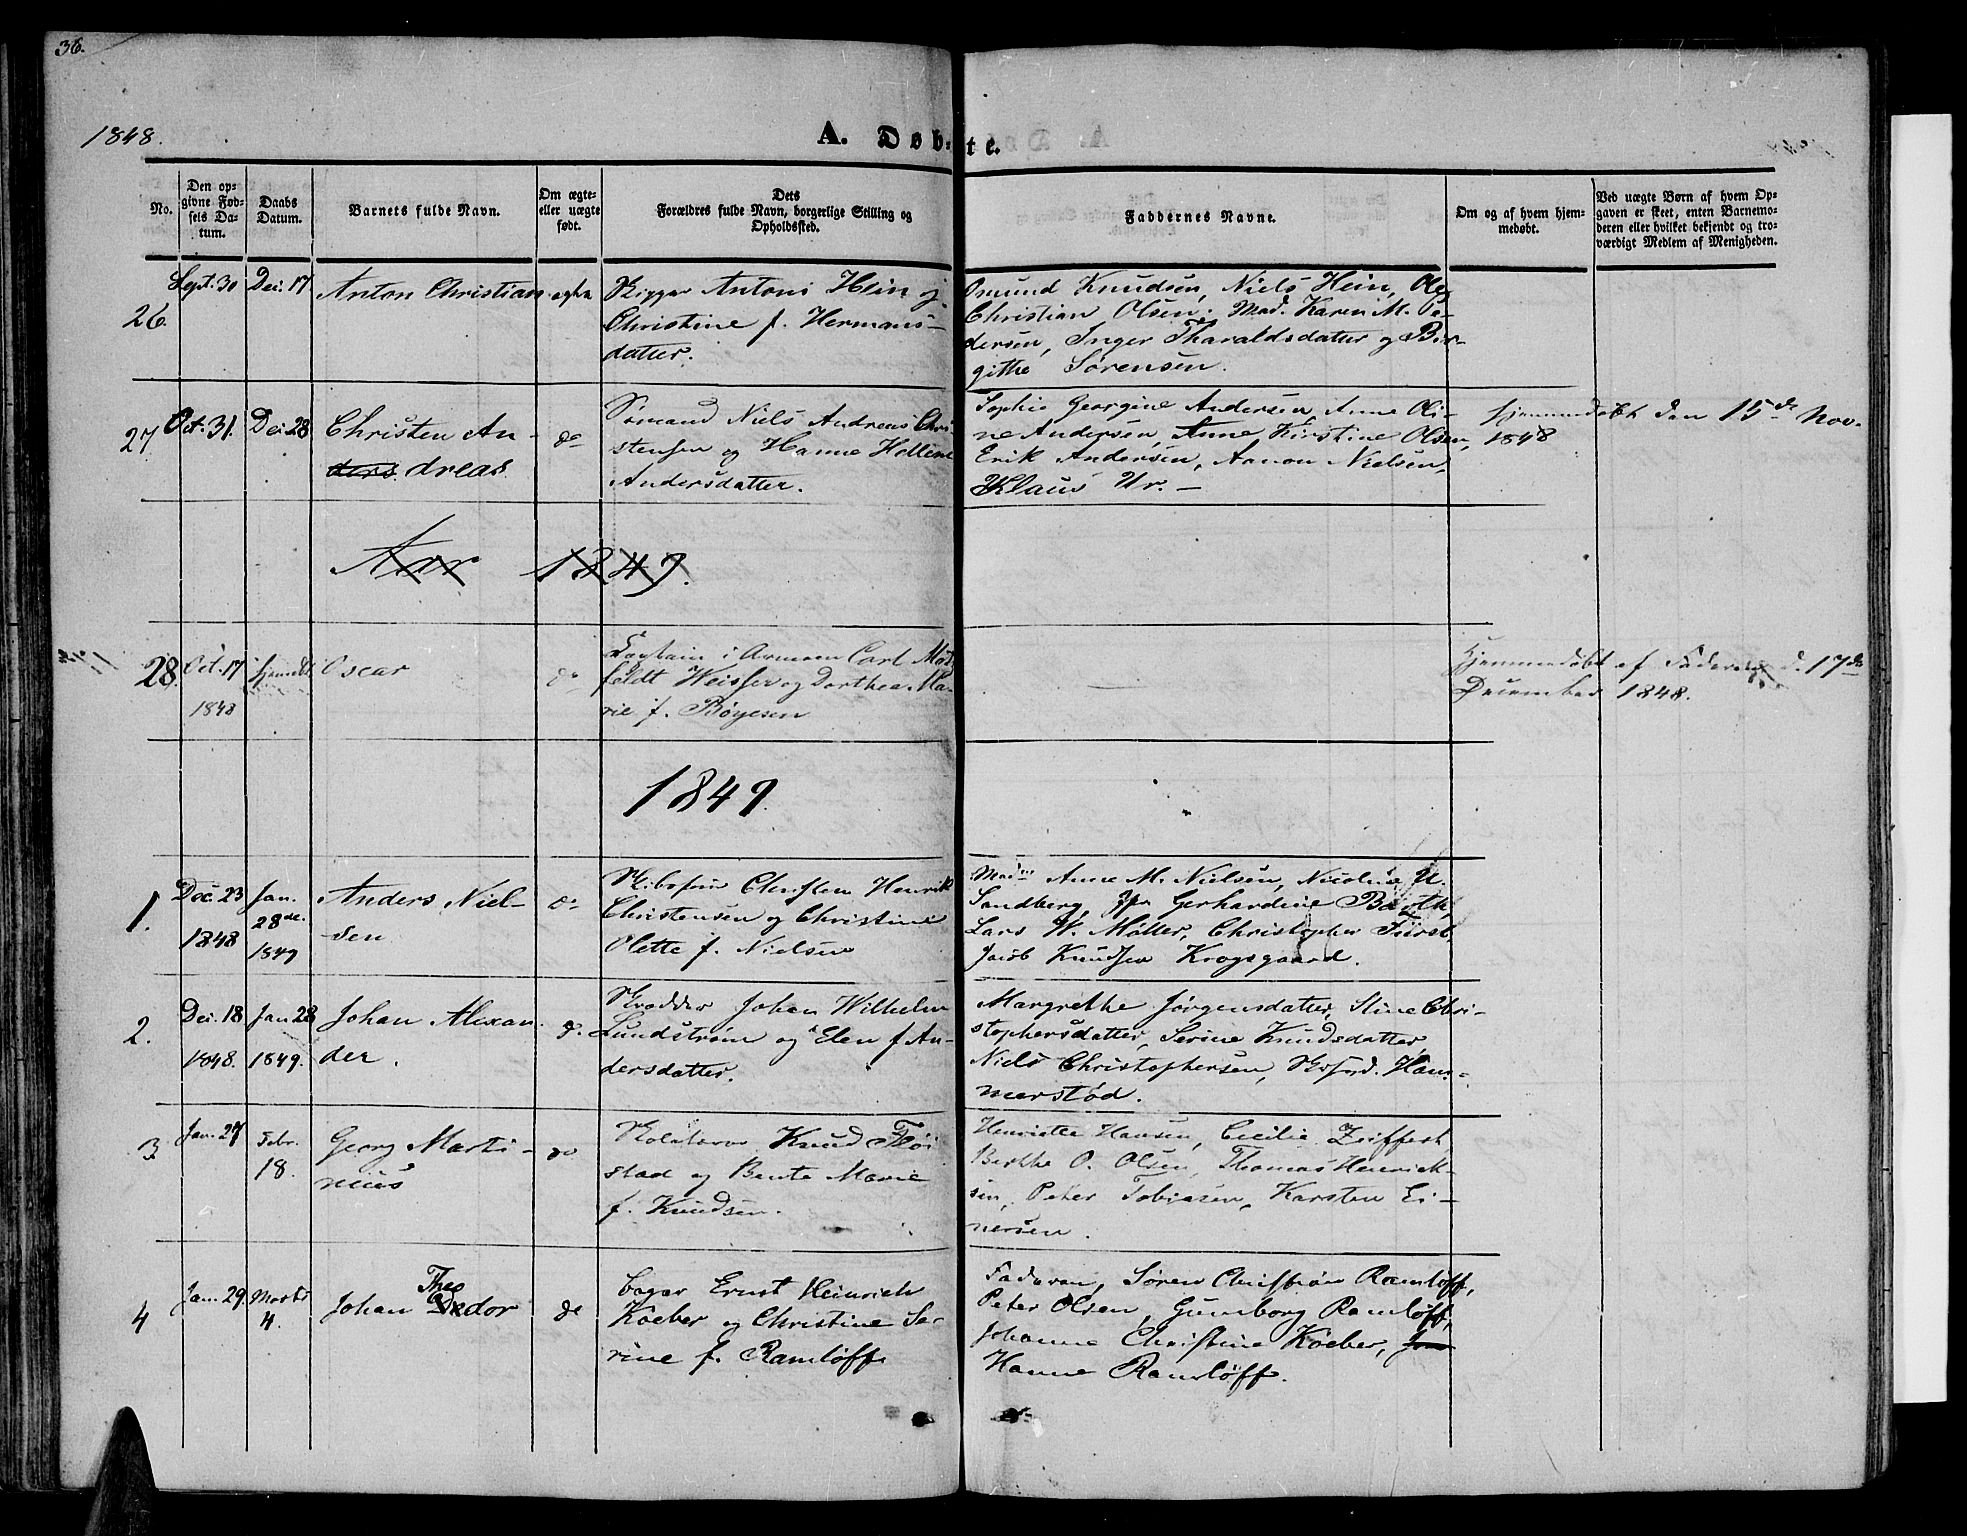 36.
1848.
A. Døbte.
No.
Den op-
givne Fød-
sels Da-
tum.
Daabs
Datum.
Barnets fulde Navn.
Om ægte-
eller uægte
født.
Dets
Forældres fulde Navn, borgerlige Stilling og
Opholdssted.
Faddernes Navne.
Om og af hvem hjem-
medøbt.
Ved uægte Børn af hvem Op-
gaven er skeet, enten Barnemo-
deren eller hvilket bekjendt og tro-
værdigt Medlem af Menigheden.
26.
Sept. 30
Dec. 17
Anton Christian
ægte
Rigger Antoni Hein og
Christine f. Hermans-
datter.
Osmund Knudsen, Niels Hein, Ole
Christian Olsen. Mad. Karen M. Pe-
dersen, Inger Tharaldsdatter og Bir-
githe Sørensen.
27
Oct. 31.
Dec 28
Christen An-
ders dreas
do
Sømand Niels Andreas Chri-
stensen og Hanne Helline
Andersdatter.
Sophie Georgine Andersen, Anne Oli-
ne Andersen, Anne Kirstine Olsen,
Erik Andersen, Aanon Nielsen,
Klaus Ur. –
Hjemmedøbt den 15de Nov.
1848
Aar 1849.
28.
Oct. 17
1848
Hjemdbt
Oscar
do
Captain i Armeen Carl
feldt Weisser og Dorthea Ma-
rie f. Bøyesen
Hjemmedøbt af Faderen d. 17de
December 1848.
1849.
1.
Dec. 23
1848
Jan.
28de
1849
Anders Niel-
sen
do
Christen Henrik
Christensen og Christine
Olette f. Nielsen
Madm Anne M. Nielsen, Nicoline U.
Sandberg, Gerhardine
Lars W. Møller, Christopher Fürst,
Jacob Knudsen Krogsgaard.
2.
Dec. 18
1848.
Jan 28
1849.
Johan Alexan-
der.
do
Skrædder Johan Wilhelm
Lundstrøm og Elen f. An-
dersdatter.
Margrethe Jørgensdatter, Stine Chri-
stophersdatter, Serine Knudsdatter,
Niels Christophersen, Ham-
merstød.
3
Jan. 27
Febr.
18.
Georg Marti-
nius
do
Knud Fløi
stad og Bente Marie
f. Knudsen.
Henriette Hansen, Cecilie Zeiffert,
Berthe O. Olsen, Thomas Henrick-
sen, Peter Tobiasen, Karsten Ei-
nersen.
4
Jan. 29.
Marts
4.
Johan Theodor
do
Bager Ernst Heinrich
Koeber og Christine Se-
rine f. Ramløff
Faderen, Søren Christian Ramløff,
Peter Olsen, Gunborg Ramløff,
Johanne Christine Koeber,
Hanne Ramløff.